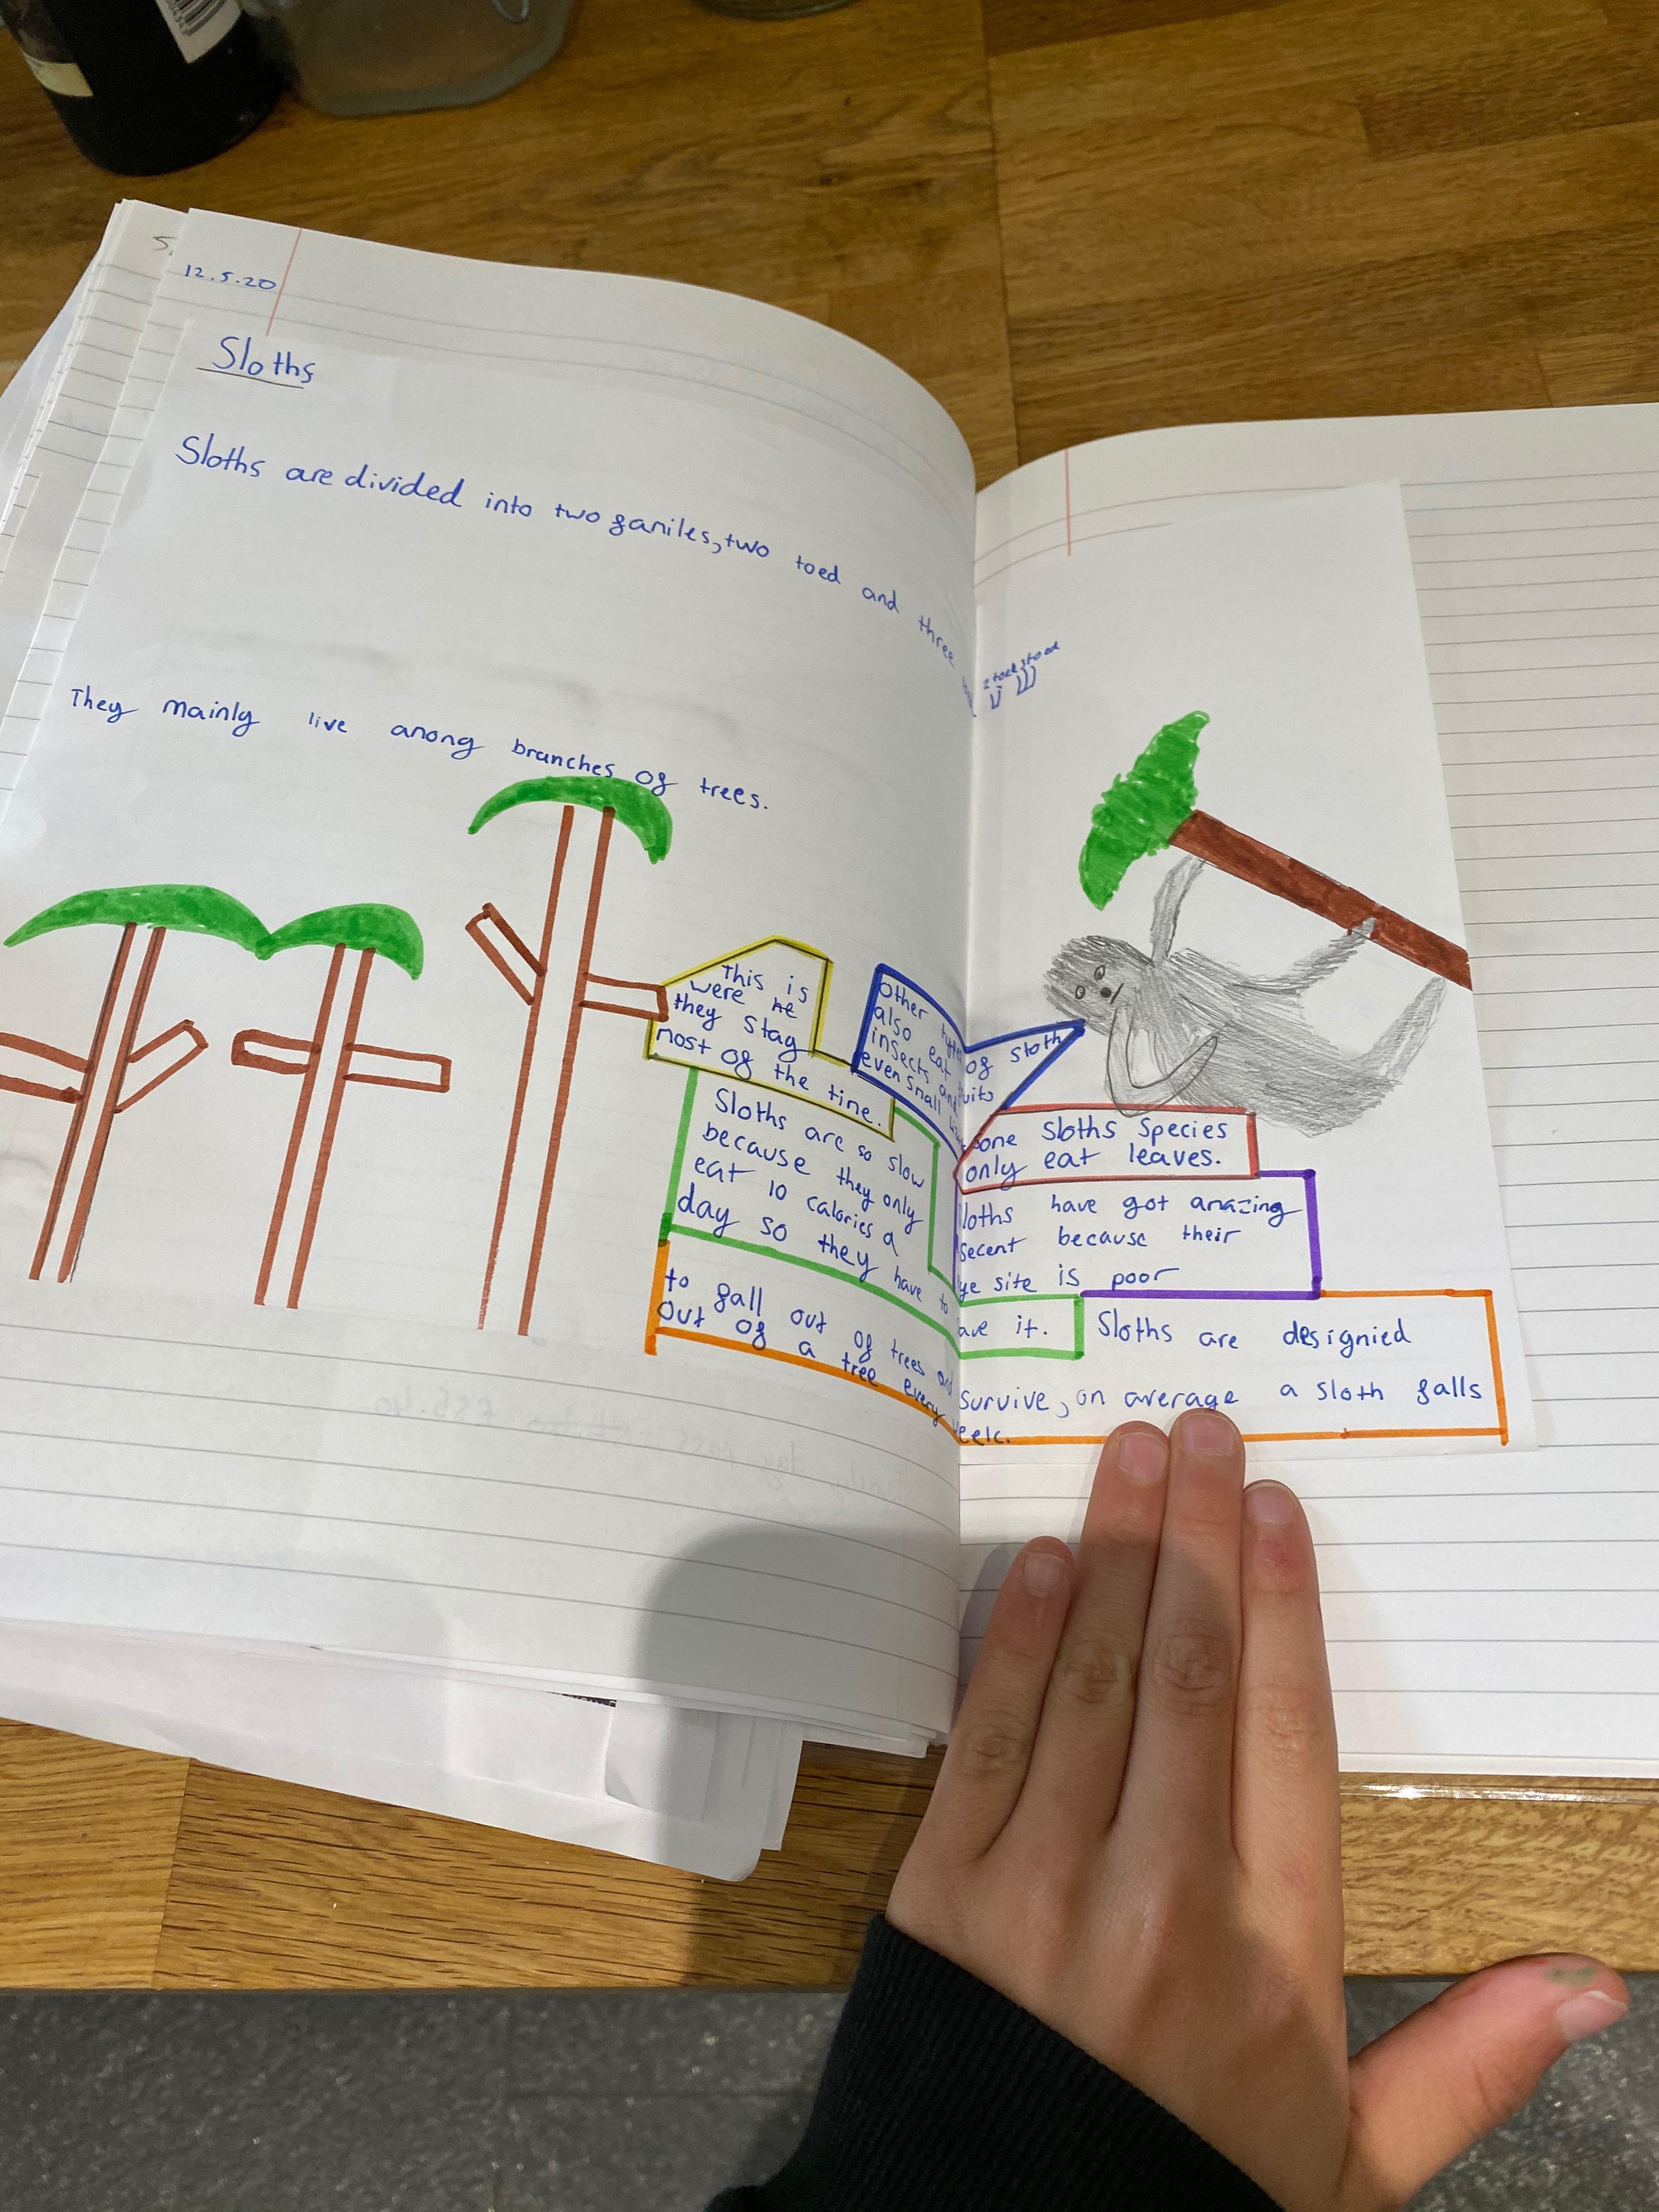 12.5.20
Sloths
Sloths are divided into two faniles, two toed and three
2 toed 3 toed
They mainly live anong branches of trees.
This is
were he
they stay
most of the time.
Other types of sloth
also eat fruits
insects and
even small
Some Sloths species
only eat leaves.
Sloths are so slow
because they only
eat 10 calories a
day so they have to
ave it.
loths have got amazing
secent because their
ye site is poor
Sloths are designied
to fall out of trees and survive, on average a sloth falls
out of a tree every week.